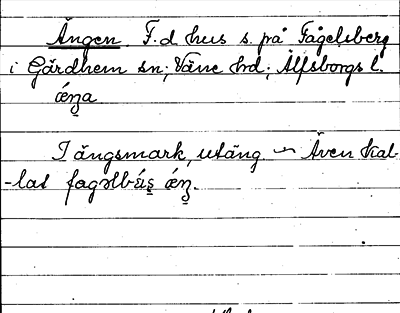 Ängen. F.d. hus s. på Fågelsberg
i Gärdhem sn; Väne hrd; Älfsborgs l.
I ängsmark, utäng ~ Även kal-
-lat